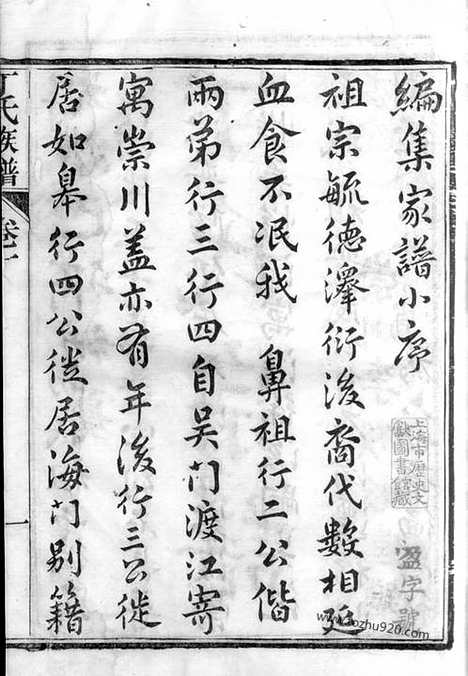 編集家譜小序
盈字號
上海市歷史文
獻圖書館藏
祖宗毓德澤衍後裔代數相延
血食不泯我 鼻祖行二公偕
兩弟行三行四自吳門渡江寄
寓崇川蓋亦有年後行三公徙
居如皋行四公徙居海門別籍
丁氏族譜 卷一 一
www.bozhu920.com